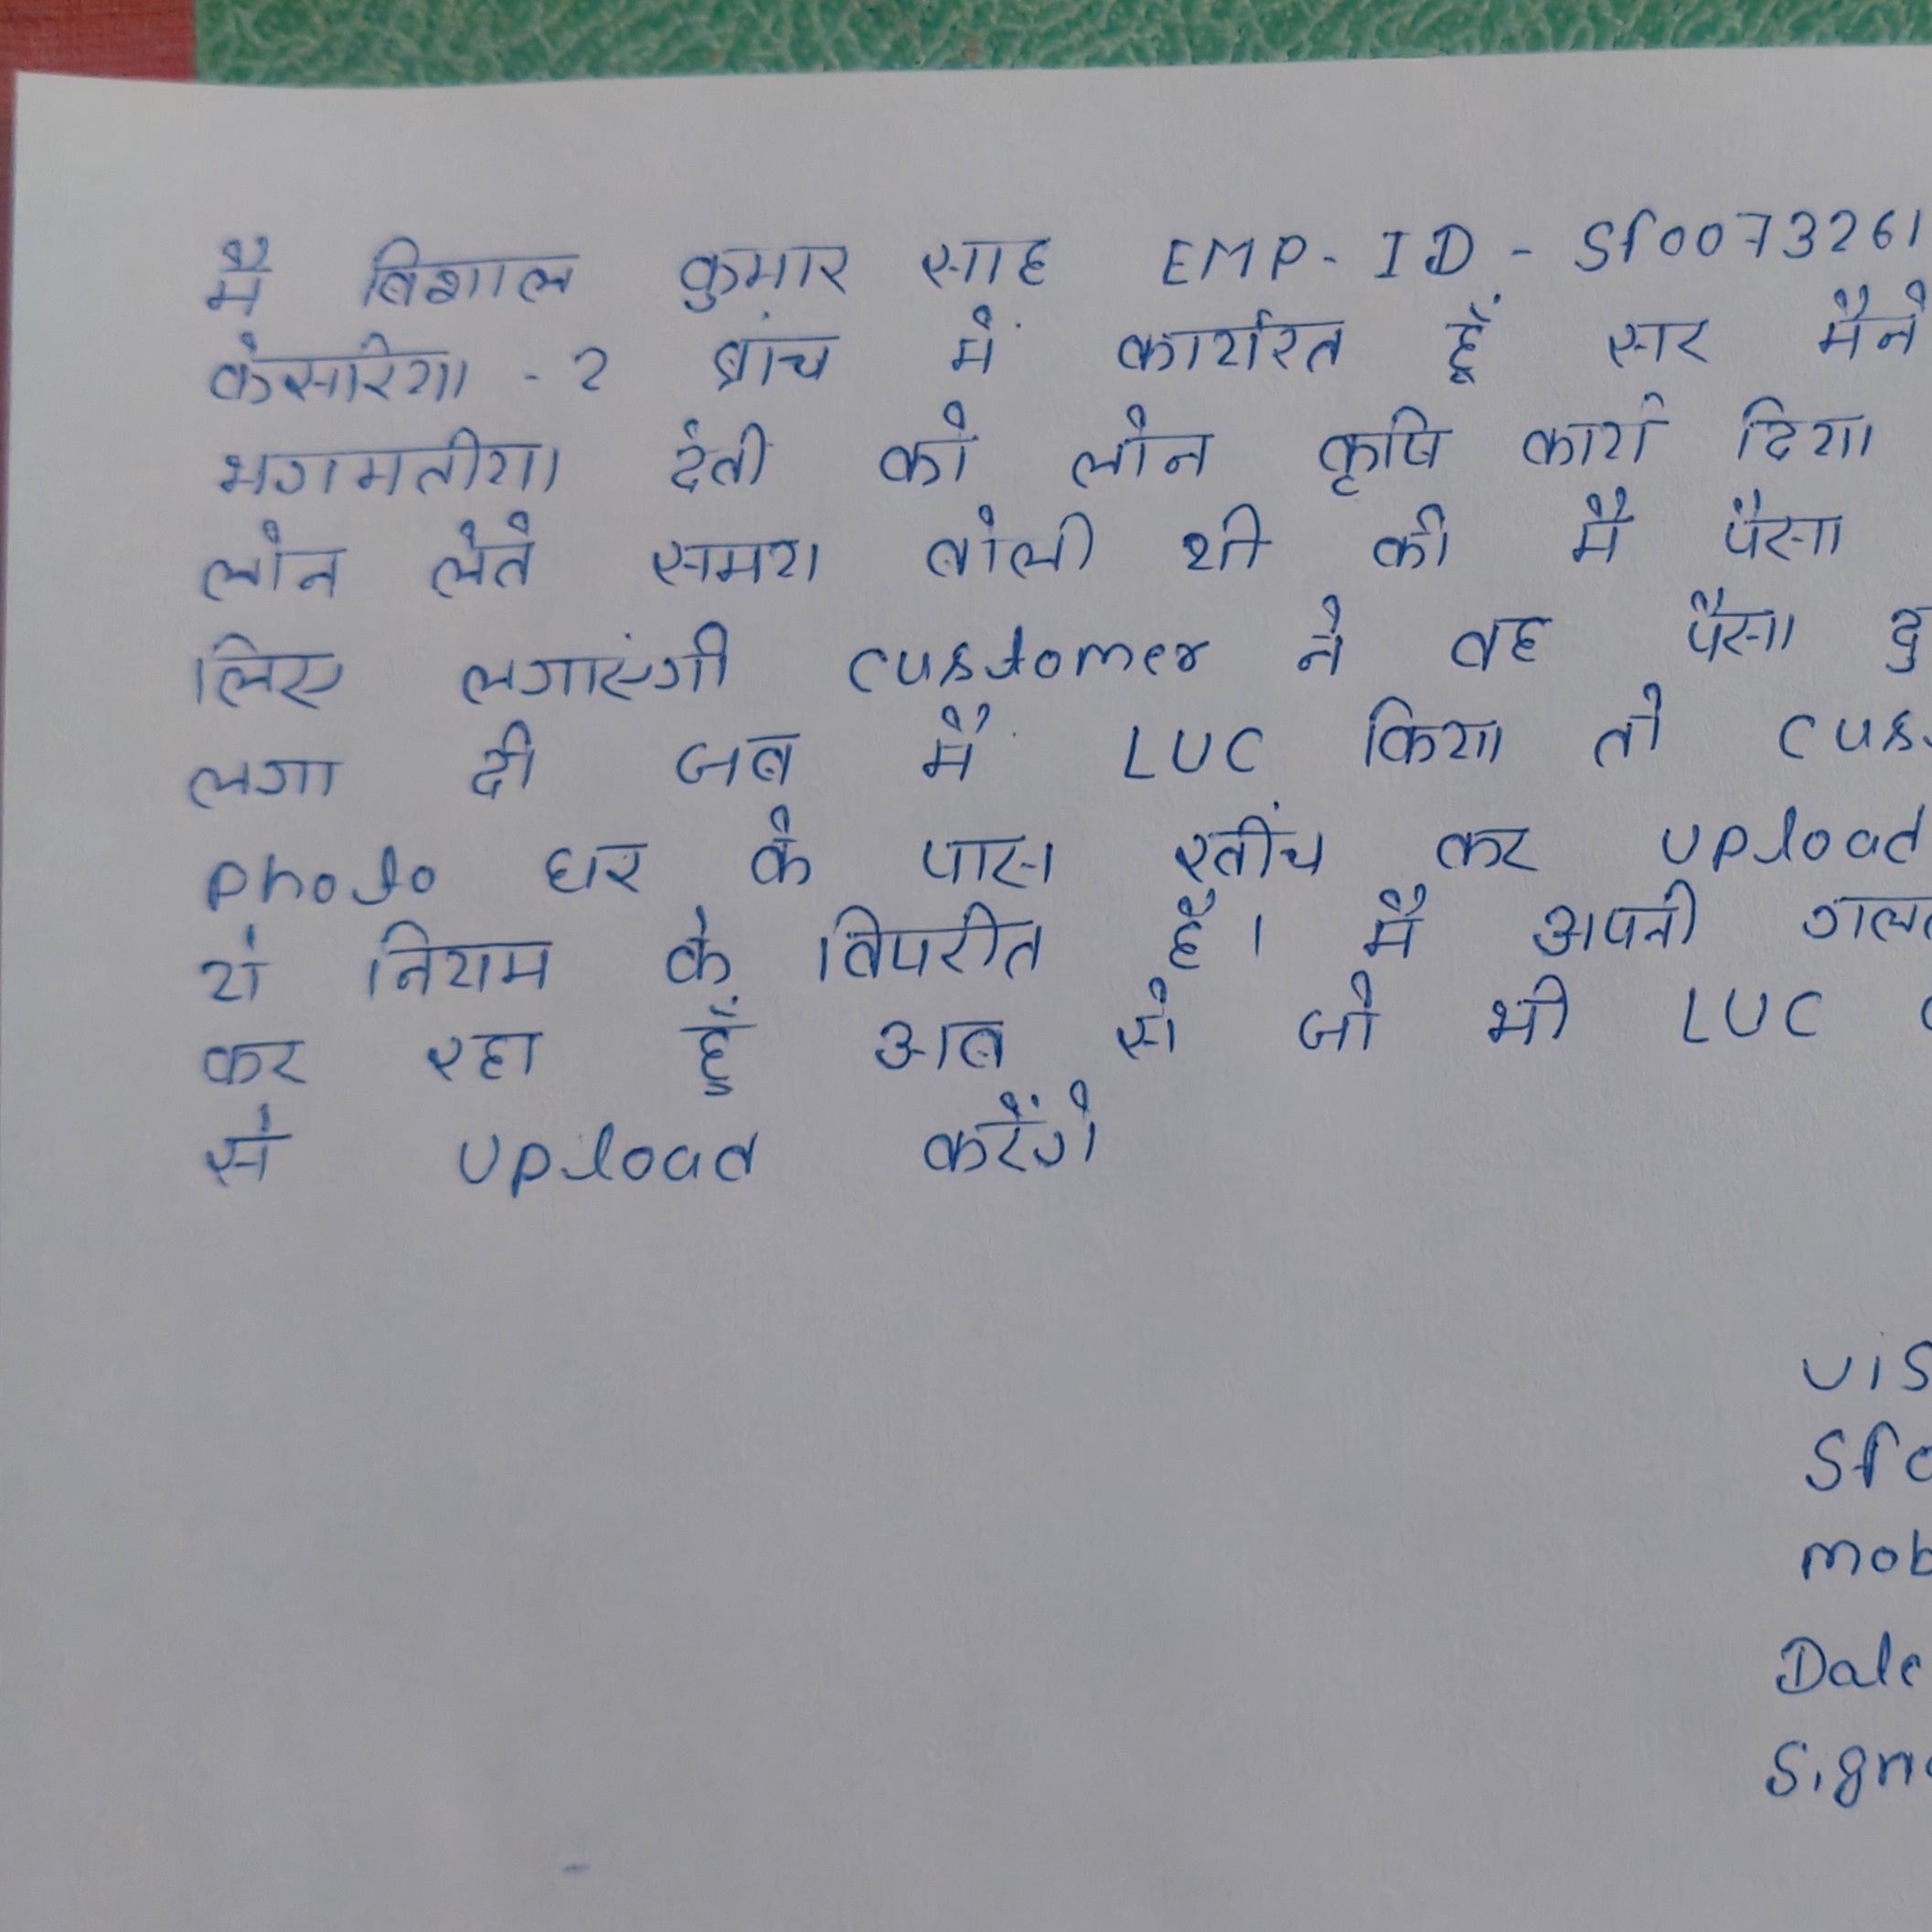 मै विशाल कुमार साह EMP-ID - Sf0073261
केसरिया -2 ब्रांच में कार्यरत हूँ सर मैने
भगमतीया देवी को लोन कृषि कार्य दिया
लोन लेते समय बोली थी की मै पैसा
लिए लगाएंगी customer ने वह पैसा दु
लगा दी जब मैं LUC किया तो cus
photo घर के पास खींच कर upload
यो नियम के विपरीत है। मै अपनी गल
कर रहा हूँ अब से जो भी LUC
से upload करेंगे
Vis
Sf0
mob
Date
Sign